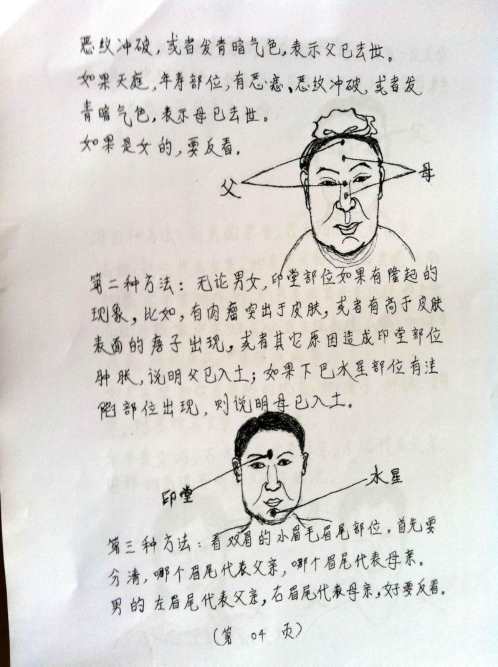 恶纹冲破，或者发青暗气色，表示父已去世。
如果天庭，年寿部位，有恶痣、恶纹冲破，或者发
青暗气色，表示母已去世。
如果是女的，要反看。
父
母
第二种方法：无论男女，印堂部位如果有隆起的
现象，比如，有肉瘤突出于皮肤，或者有高于皮肤
表面的痦子出现，或者其它原因造成印堂部位
肿胀，说明父已入土；如果下巴水星部位有洼
陷部位出现，则说明母已入土。
印堂
水星
第三种方法：看双眉的小眉毛眉尾部位。首先要
分清，哪个眉尾代表父亲，哪个眉尾代表母亲。
男的左眉尾代表父亲，右眉尾代表母亲，女要反看。
(第 04 页)